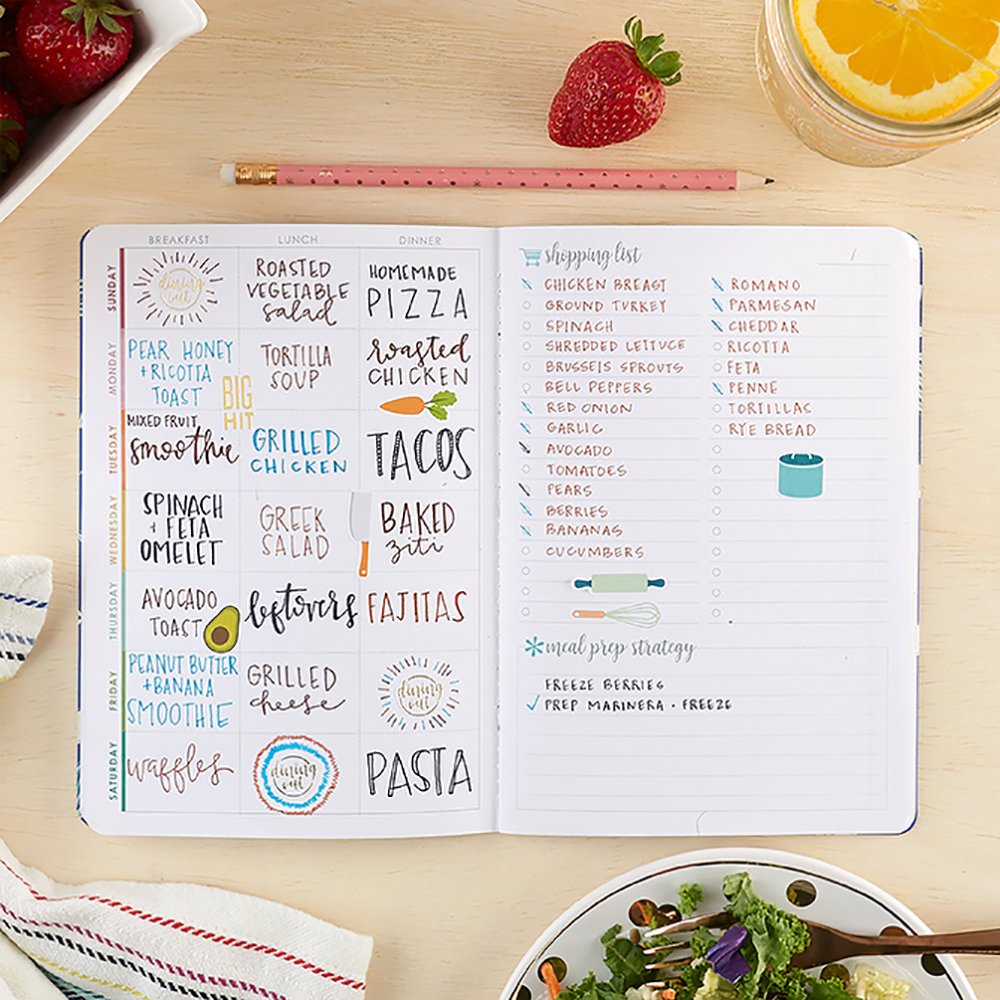 BREAKFAST LUNCH DINNER
SUNDAY
dining
out
ROASTED
VEGETABLE
salad
HOMEMADE
PIZZA
MONDAY
PEAR HONEY
+ RICOTTA
TOAST
BIG
HIT
TORTILLA
SOUP
roasted
CHICKEN
TUESDAY
MIXED FRUIT
smoothie
GRILLED
CHICKEN
TACOS
WEDNESDAY
SPINACH
+ FETA
OMELET
GREEK
SALAD
BAKED
ziti
THURSDAY
AVOCADO
TOAST
leftovers
FAJITAS
FRIDAY
PEANUT BUTTER
+ BANANA
SMOOTHIE
GRILLED
cheese
dining
out
SATURDAY
waffles
dining
out
PASTA
shopping list
/
CHICKEN BREAST
GROUND TURKEY
SPINACH
SHREDDED LETTUCE
BRUSSEIS SPROUTS
BELL PEPPERS
RED ONION
GARLIC
AVOCADO
TOMATOES
PEARS
BERRIES
BANANAS
CUCUMBERS
ROMANO
PARMESAN
CHEDDAR
RICOTTA
FETA
PENNE
TORTILLAS
RYE BREAD
*meal prep strategy
FREEZE BERRIES
✓ PREP MARINERA • FREEZE